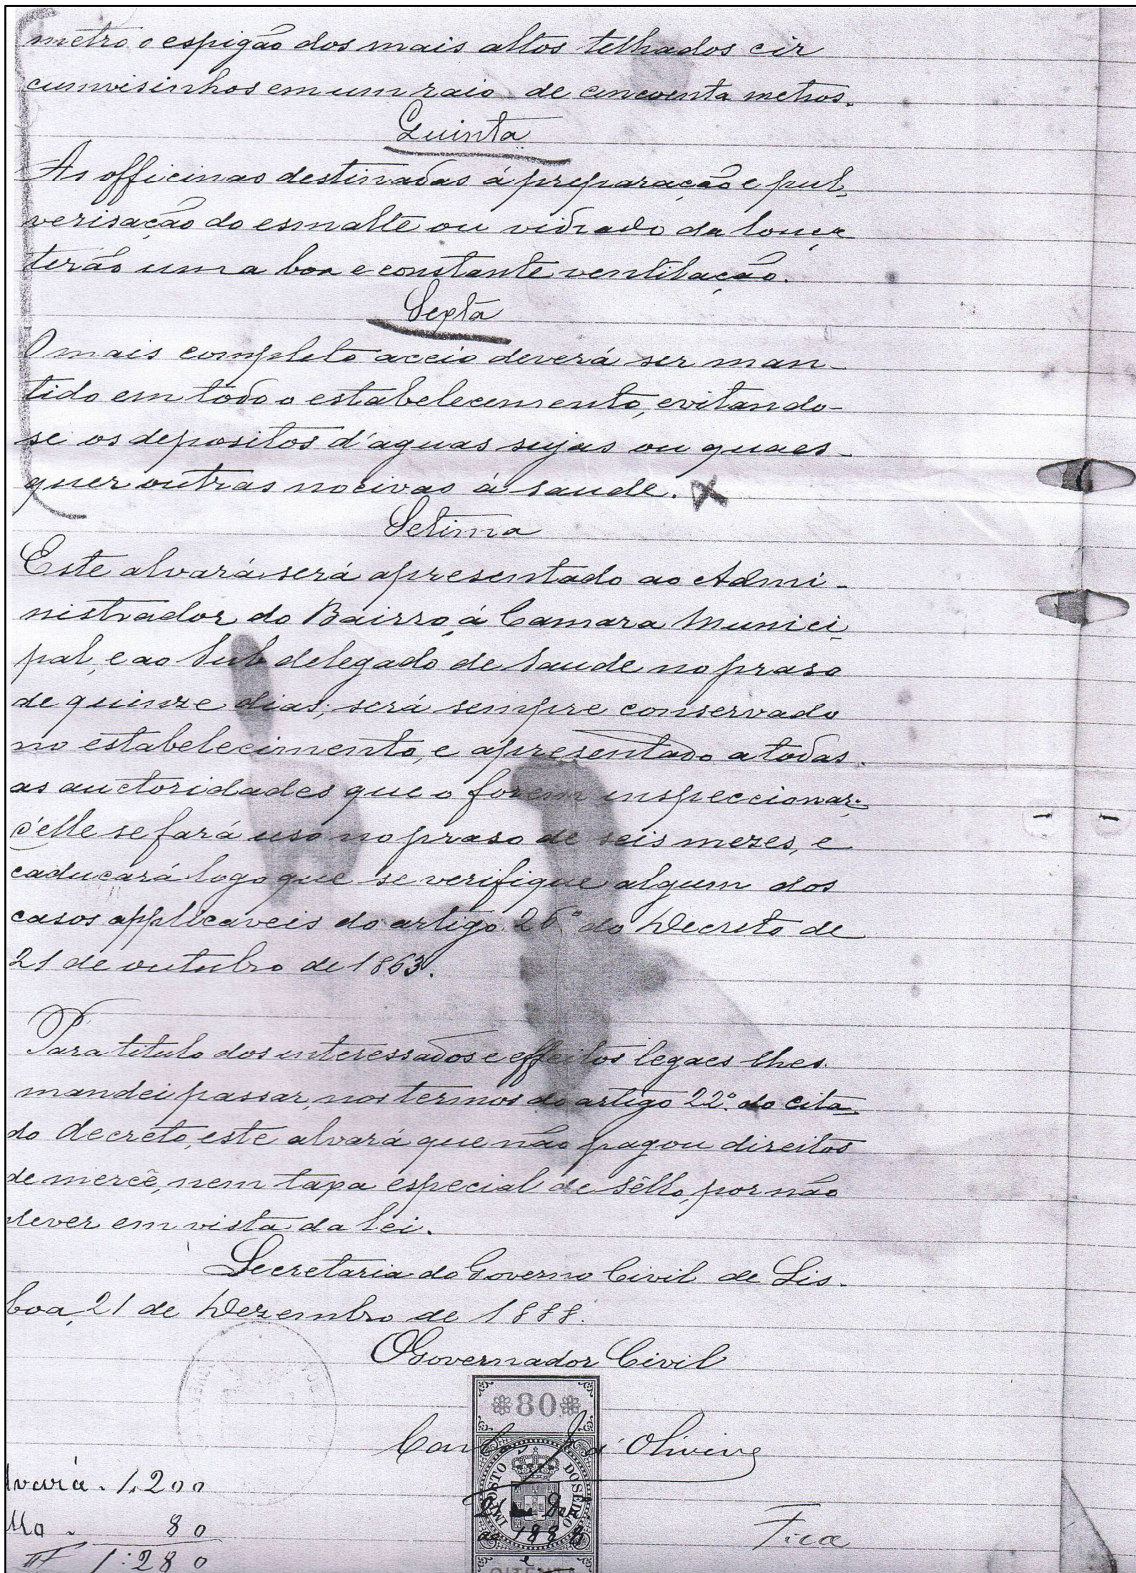 metro o espigão dos mais altos telhados cir
cumvisinhos em um raio de cincoenta metros.
Quinta
As officinas destinadas á preparação e pul-
verisação do esmalte ou vidrado da louça
terão uma boa e constante ventilação.
Sexta
O mais completo acceio deverá ser man-
tido em todo o estabelecimento, evitando-
se os depositos d'aguas sujas ou quaes-
quer outras nocivas á saude.
Setima
Este alvará será apresentado ao Admi-
nistrador do Bairro, á Camara Munici-
pal, e ao Sub delegado de Saude no praso
de quinze dias; será sempre conservado
no estabelecimento, e apresentado a todas
as auctoridades que o forem inspeccionar;
d'elle se fará uso no praso de seis mezes, e
caducará logo que se verifique algum dos
casos applicaveis do artigo 26º do Decreto de
21 de outubro de 1863.
Para titulo dos interessados e effeitos legaes lhes
mandei passar, nos termos do artigo 22º do cita-
do decreto, este alvará que não pagou direitos
de mercê, nem taxa especial de sêllo, por não
dever em vista da lei.
Secretaria do Governo Civil de Lis-
boa, 21 de Dezembro de 1888.
O Governador Civil
80
IMPOSTO DO SELLO
21 de Dez
de 1888
OITENTA
lvará . 1,200
llo . 80
1:280
Fica